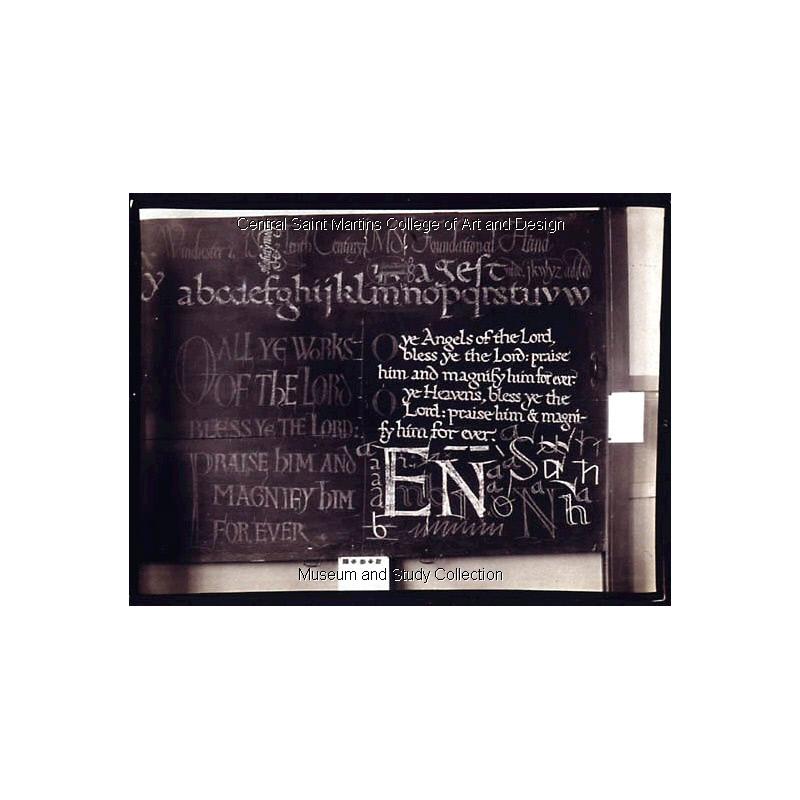 Central Saint Martins College of Art and Design
Winchester Tenth Century MS. Foundational Hand
a g e s t
y abcdefghijklmnopqrstuvw
O ALL YE WORKS
OF THE LORD
BLESS YE THE LORD:
PRAISE HIM AND
MAGNIFY HIM
FOR EVER
O ye Angels of the Lord,
bless ye the Lord: praise
him and magnify him for ever.
O ye Heavens, bless ye the
Lord: praise him & magni-
fy him for ever.
EN
N
b
h
Museum and Study Collection